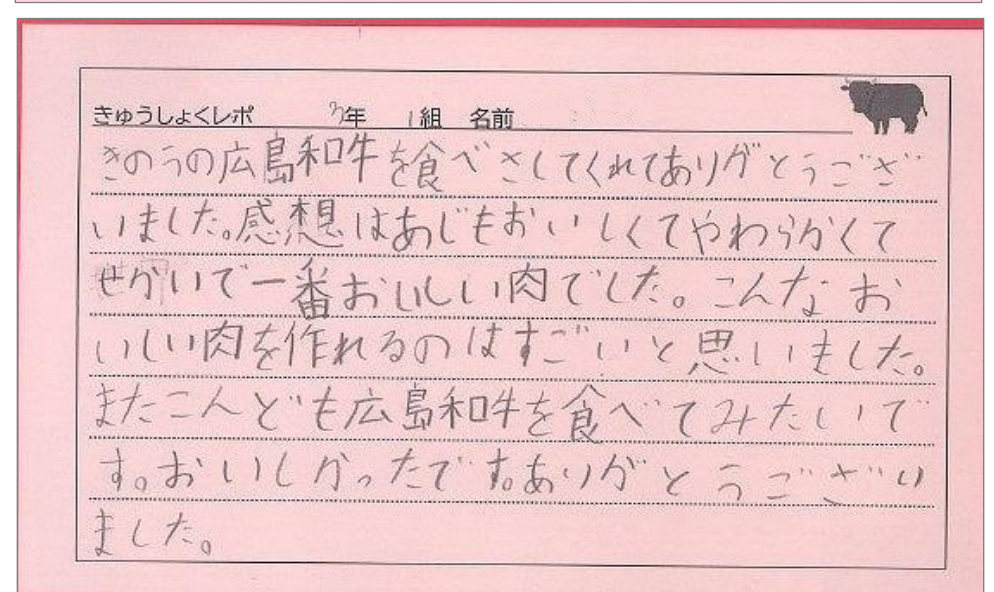 きゅうしょくレポ 3年 1組 名前
きのうの広島和牛を食べさしてくれてありがとうござ
いました。感想はあじもおいしくてやわらかくて
せかいで一番おいしい肉でした。こんなお
いしい肉を作れるのはすごいと思いました。
またこんども広島和牛を食べてみたいで
す。おいしかったです。ありがとうござい
ました。